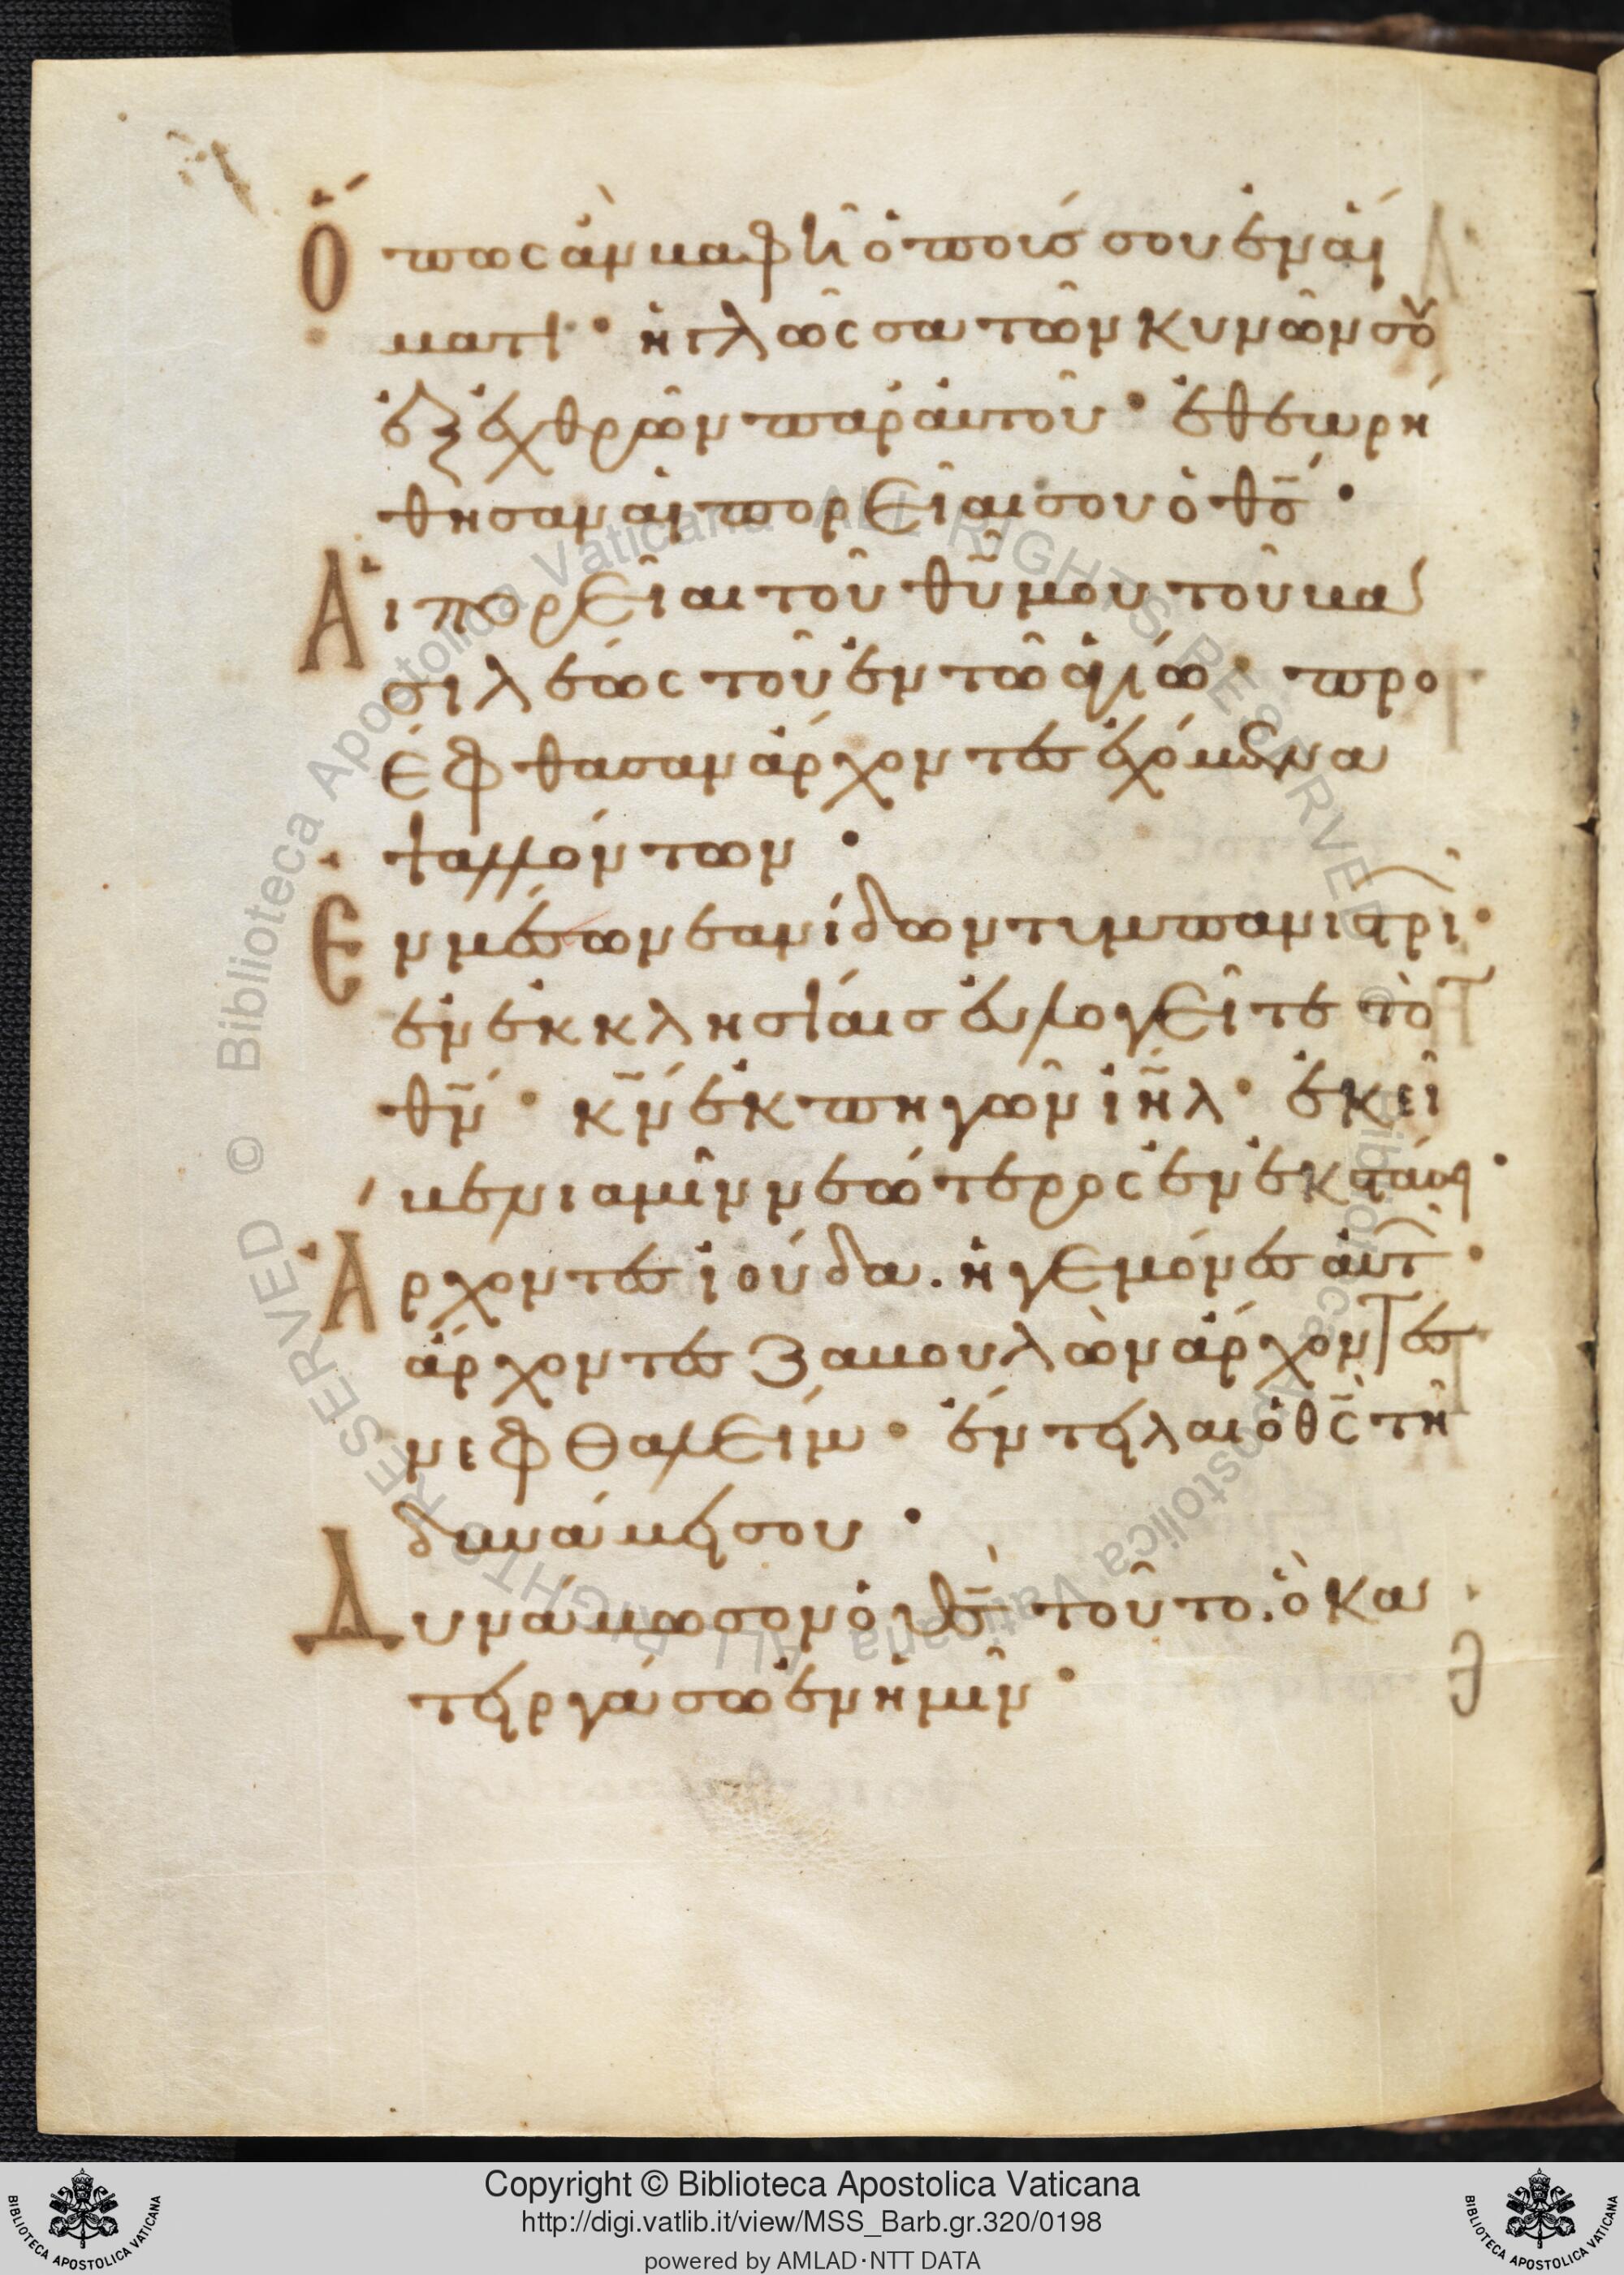 Ὅπως ἂν βαφῆ ὁ πούσ σου ἐν αἵ
ματι · ἡ γλῶσσα τῶν κυνῶν σου
ἐξ ἐχθρῶν παρ αυτοῦ · ἐθεωρή
θησαν αἱ πορεῖαι σου ὁ θσ ·
Αἱ πορεῖαι τοῦ θυ μου τοῦ βα
σιλέως τοῦ ἐν τῶ ἁγίω · προ
έφθασαν ἄρχοντες ἐχόμενα
ψαλλόντων ·
Ἐν μέσω νεανίδων τυμπανιστρι ·
ἐν ἐκκλησίαις ἐυλογεῖτε τὸ
θν · κν ἐκ πηγῶν ιηλ · ἐκεῖ
βενιαμὶν νεώτερος ἐν ἐκστάσ ·
Ἄρχοντες ἰούδα. ἡγεμόνες αὐτ ·
ἄρχοντες ζαβουλὼν ἄρχοντες
νεφθαλείμ · ἔντειλαι ὁ θς τῆ
δυνάμει σου ·
Δυνάμωσον ὁ θσ τοῦτο. ὃ κα
τειργάσω ἐν ἡμῖν ·
Copyright © Biblioteca Apostolica Vaticana
http://digi.vatlib.it/view/MSS_Barb.gr.320/0198
powered by AMLAD·NTT DATA
BIBLIOTECA APOSTOLICA VATICANA
BIBLIOTECA APOSTOLICA VATICANA
© Biblioteca Apostolica Vaticana ALL RIGHTS RESERVED
© Biblioteca Apostolica Vaticana ALL RIGHTS RESERVED